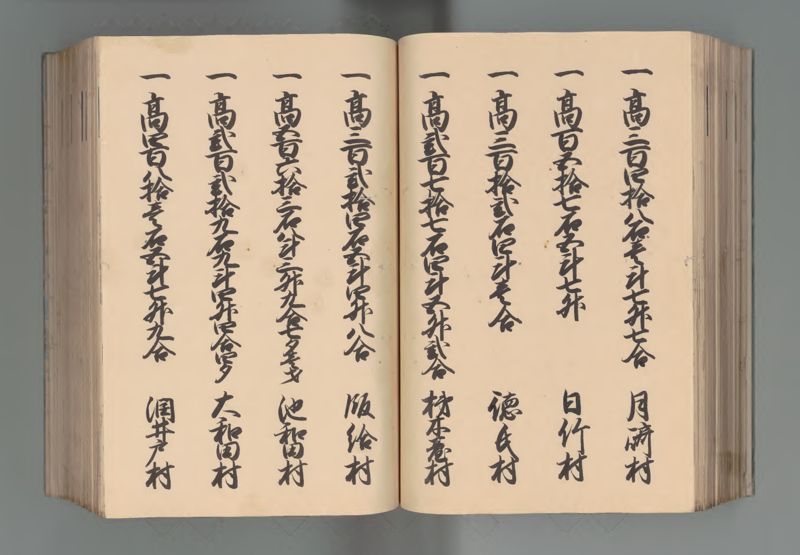 一 高三百四拾八石壱斗七升七合 月崎村
一 高百五拾七石五斗七升 日竹村
一 高三百拾弐石四斗壱合 徳氏村
一 高弐百七拾七石四斗五升弐合 村
一 高三百弐拾四石五斗四升八合 飯給村
一 高五百六拾三石八斗三升九合七夕壱才 池和田村
一 高弐百弐拾九石九斗四升四合四夕 大和田村
一 高四百八拾壱石五斗七升九合 潤井戸村